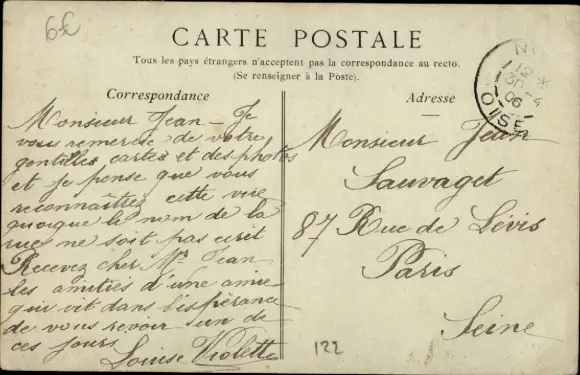 6€
CARTE POSTALE
Tous les pays étrangers n'acceptent pas la correspondance au recto.
(Se renseigner à la Poste).
Correspondance
Monsieur Jean - Je
vous remercie de votre
gentilles cartes et des photos
et je pense que vous
reconnaîtrez cette vire
quoique le nom de la
rue ne soit pas ecrit
Recevez cher Mr Jean
les amitiés d'une amie
qui vit dans l'espérance
de vous revoir un de
ces jours
Louise Violette
Adresse
Monsieur Jean
Sauvaget
87 Rue de Lévis
Paris
Seine
12
30-4
06
OISE
122